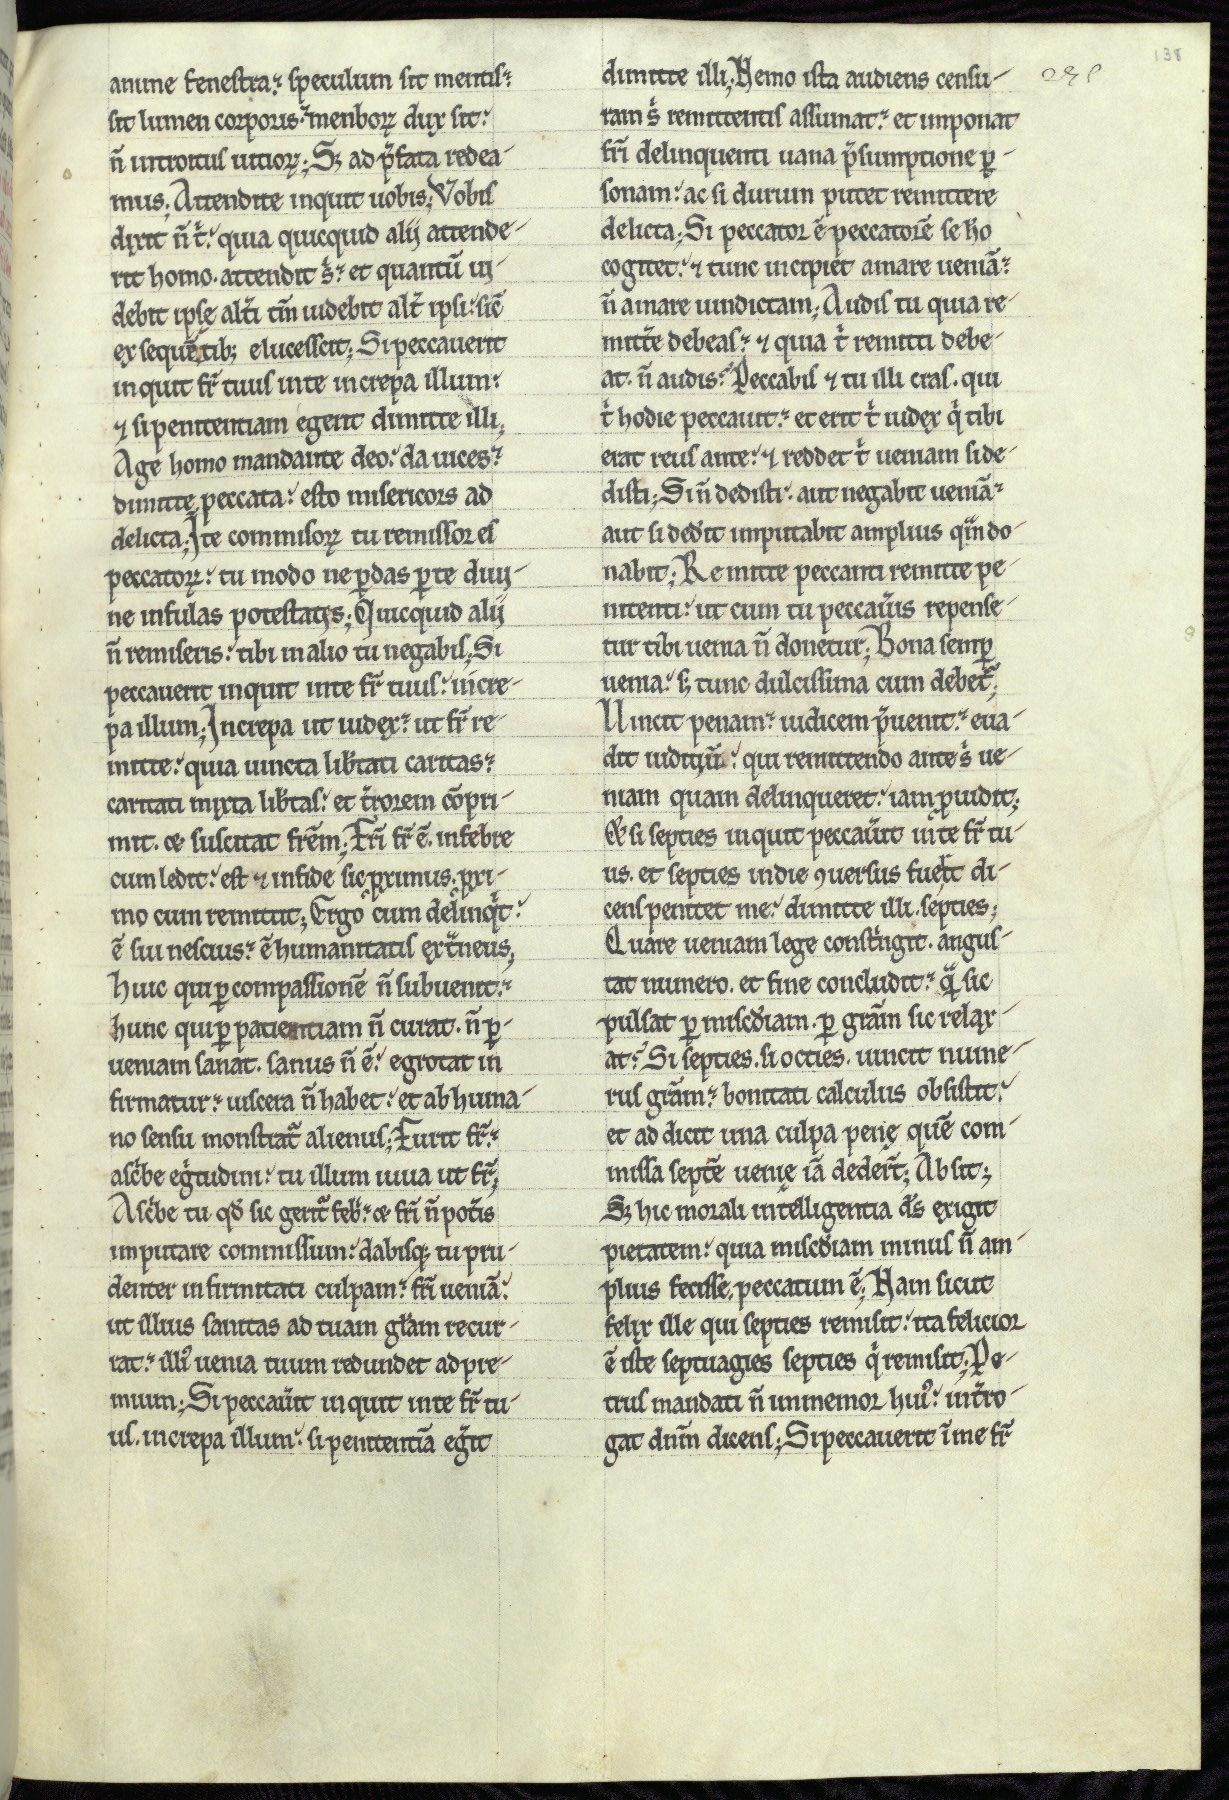 138
anime fenestra. speculum sit mentis.
sit lumen corporis. menborꝝ dux sit.
n̄ introitus uitiorꝝ; Sꝫ ad p̄fata redea-
mus; Attendite inquit uobis; Vobis
dixit n̄ t̉. quia quicquid alij attende-
rit homo. attendit s̉. et quantū ui-
debit ipse alt̉i tm̄ uidebit alt̉ ipsi. sic̄
ex sequētibꝫ elucesscit; Si peccauerit
inquit fr̄ tuus inte increpa illum.
⁊ si penitentiam egerit dimitte illi;
Age homo mandante deo. da uices.
dimitte peccata. esto misericors ad
delicta; In te commisorꝝ tu remissor es
peccatorꝝ. tu modo ne ꝑdas ꝑ te diui-
ne infulas potestatis; Quicquid alij
n̄ remiseris. tibi in alio tu negabis; Si
peccauerit inquit inte fr̄ tuus. incre-
pa illum; Increpa ut iudex. ut fr̄ re-
mitte. quia uincta lib̉tati caritas.
caritati mixta lib̉tas. et t̉rorem cōpri-
mit. ⁊ suscitat frēm; Fri fr̄ ē. in febre
cum ledit. est ⁊ infide sic ꝓximus. ꝓxi-
mo cum remittit; Ergo cum delinq̉t.
ē sui nescius. ē humanitatis ext̉neus;
Huic qui ꝑ compassionē n̄ subuenit.
hunc qui ꝑ patientiam n̄ curat. n̄ ꝑ-
ueniam sanat. sanus n̄ ē. egrotat in
firmatur. uiscera n̄ habet. et ab huma-
no sensu monstrat̉ alienus; Furit fr̄.
asc̉be eg̉tudini. tu illum iuua ut fr̄;
Asc̉be tu qd̄ sic gerit̉ feb̉. ⁊ fri n̄ pot̉is
imputare commissum. dabisqꝫ tu pru-
denter infirmitati culpam. fri ueniā.
ut illius sanitas ad tuam glām recur-
rat. illi᾽ uenia tuum redundet ad pre-
mium; Si peccaủit inquit inte fr̄ tu-
us. increpa illum. si penitentiā eg̉it
dimitte illi; Nemo ista audiens censu-
ram s̉ remittentis assumat. et imponat
fri delinquenti uana p̄sumptione ꝑ-
sonam. ac si durum putet remittere
delicta; Si peccator ē peccatorē se hō
cogitet. ⁊ tunc incipiet amare ueniā.
n̄ amare uindictam; Audis tu quia re-
mitt̉e debeas. ⁊ quia t̉ remitti debe-
at. n̄ audis. Peccabis ⁊ tu illi cras. qui
t̉ hodie peccauit. et erit t̉ iudex q̉ tibi
erat reus ante. ⁊ reddet t̉ ueniam si de-
disti; Si n̄ dedisti. aut negabit ueniā.
aut si dedit imputabit amplius qm̄ do-
nabit; Remitte peccanti remitte pe-
nitenti. ut cum tu peccaủis repense-
tur tibi uenia n̄ donetur; Bona semꝑ
uenia. sꝫ tunc dulcissima cum debet̉;
Uincit penam. iudicem p̄uenit. eua-
dit iuditiū. qui remittendo ante s̉ ue-
niam quam delinqueret. iam ꝓuidit;
Et si septies inquit peccaủit inte fr̄ tu-
us. et septies indie ꝯuersus fuerit di-
cens penitet me. dimitte illi. septies;
Quare ueniam lege const̉ngit. angus-
tat numero. et fine concludit. q̉ sic
pulsat ꝑ miscd̉iam. ꝑ grām sic relax-
at. Si septies. si octies. uincit nume-
rus grām. bonitati calculus obsistit.
et addicit una culpa pene quē com-
missa septē uenie iā deder̄t; Absit;
Sꝫ hic morali intelligentia d̄s exigit
pietatem. quia miscd̉iam minus n̄ am-
plius fecisse. peccatum ē; Nam sicut
felix ille qui septies remisit. ita felicior
ē iste septuagies septies q̉ remisit; Pe-
trus mandati n̄ inmemor hui᾽. int̉ro-
gat dnm̄ dicens; Si peccauerit ī me fr̄